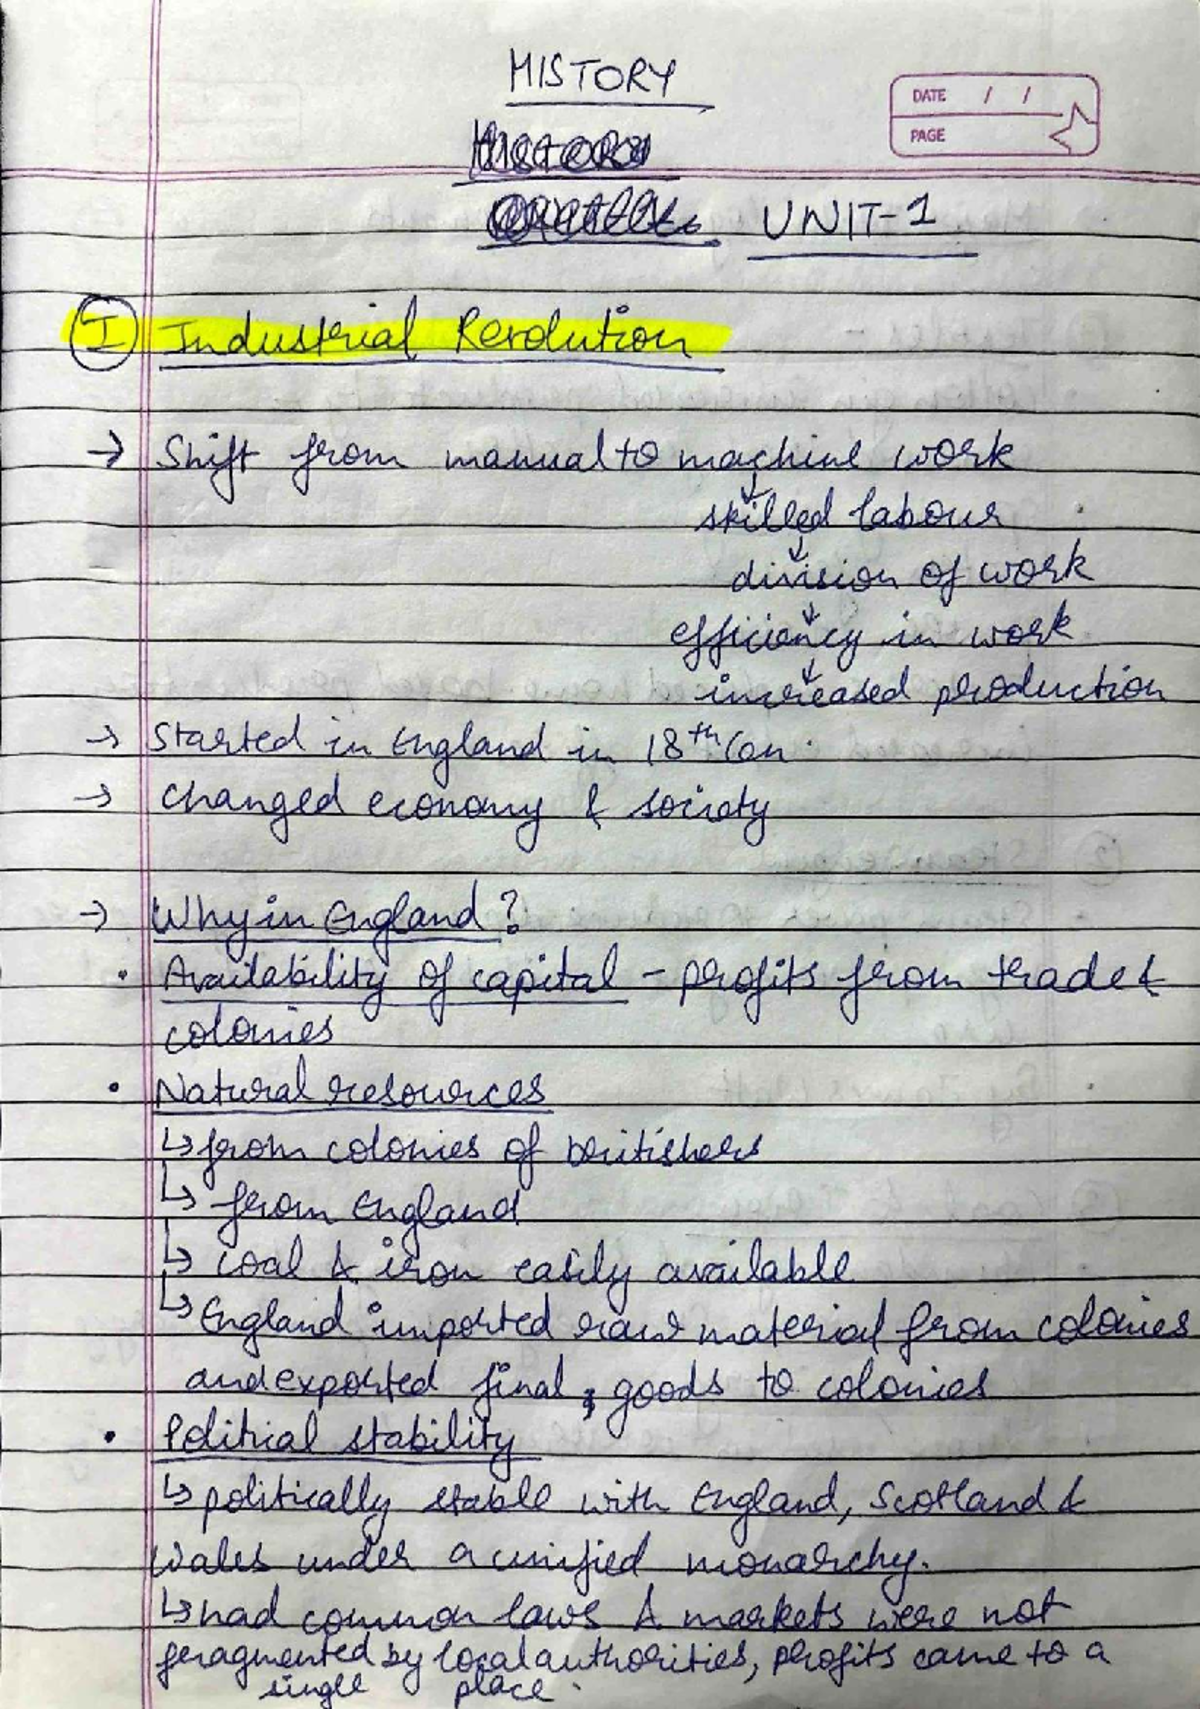 HISTORY
DATE / /
PAGE
UNIT-1
I Industrial Revolution
→ Shift from manual to machine work
↓
skilled labour
↓
division of work
↓
efficiency in work
↓
increased production
→ Started in England in 18th Cen.
→ Changed economy & society
→ Why in England?
• Availability of capital - profits from trade &
colonies
• Natural resources
↳ from colonies of britishers
↳ from England
↳ coal & iron easily available
↳ England imported raw material from colonies
and exported final goods to colonies
• Political stability
↳ politically stable with England, Scotland &
Wales under a unified monarchy.
↳ had common laws & markets were not
fragmented by local authorities, profits came to a
single place.